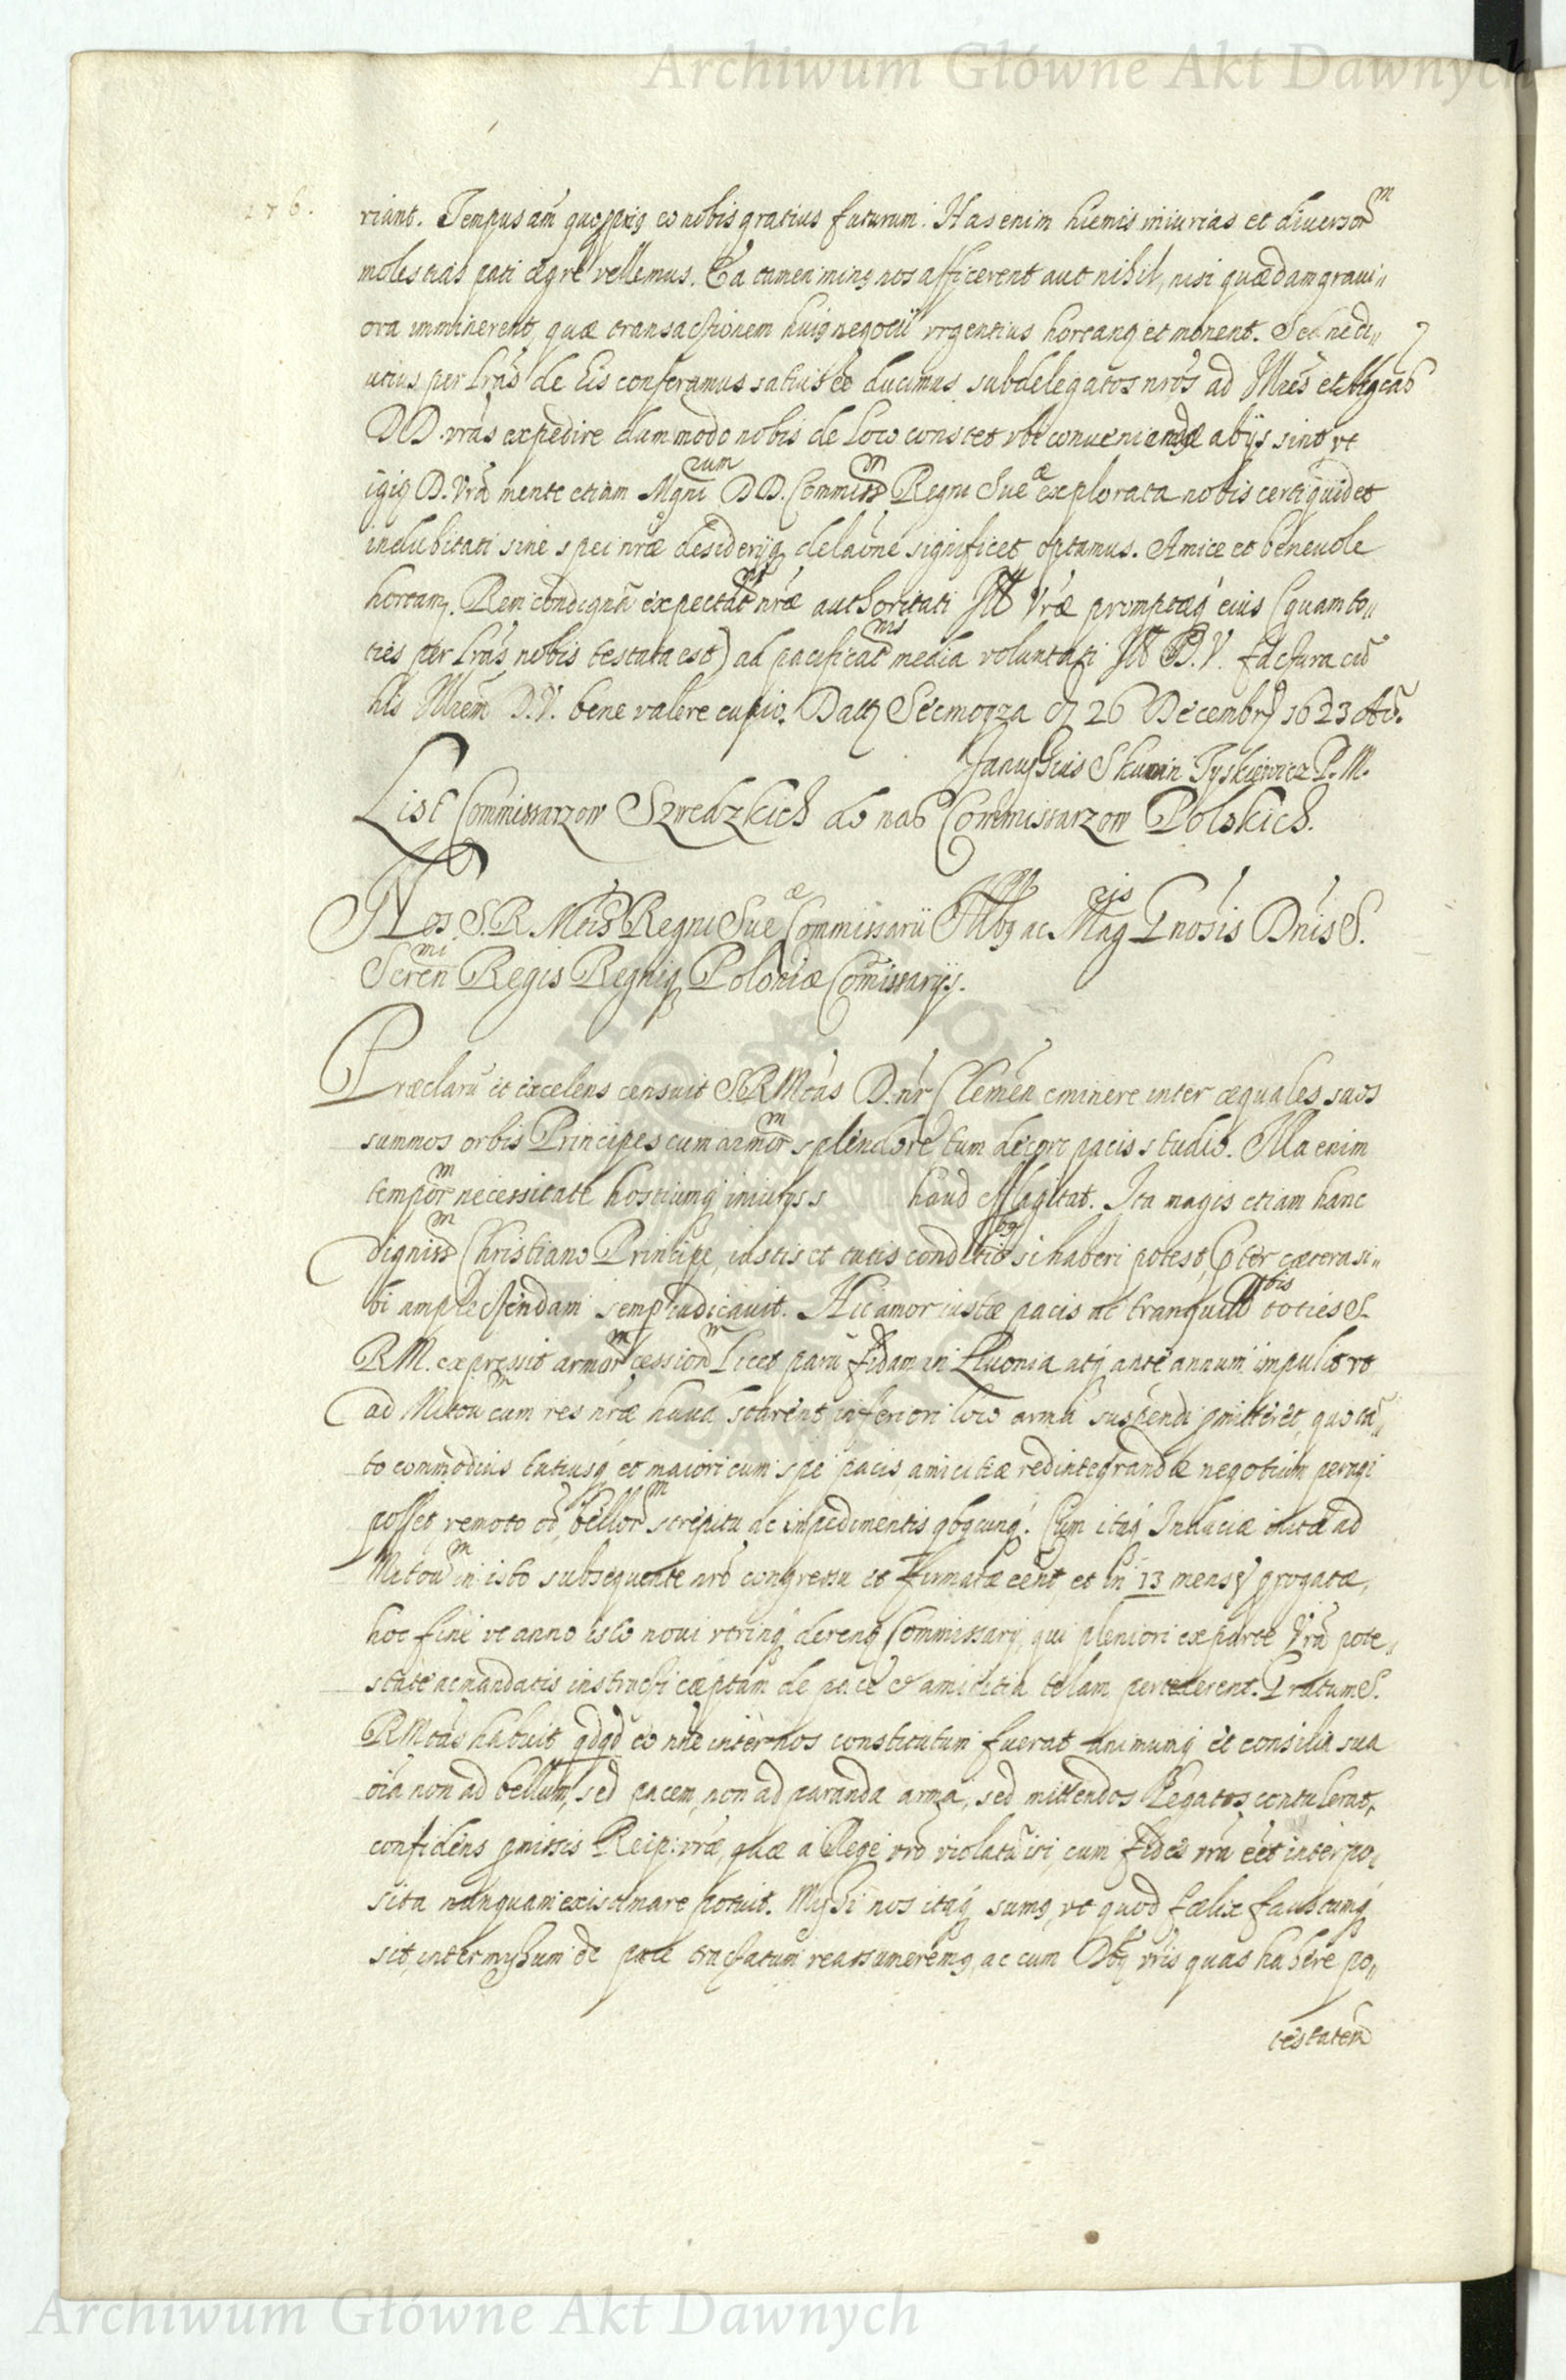 Archiwum Główne Akt Dawnych
176.
riant. Tempus am̃ quo ppiq eo nobis gratius futurum. Has enim hiemis iniurias et diversorᵐ
molestias pati ægre vellemus. Ea tamen minq nos afficerent aut nihil, nisi quædam gravi„
ora imminerent, quæ transactionem huiq negotii urgentius hortanq et monent. Sed ne di„
utius per lrãs de Eis conferamus satius eẽ ducimus subdelegatos nrõs ad Illres et Mgcas
DD. vrãs expedire dummodo nobis de loco constet vbi conveniendæ abijs sint vt
igiq D. Vrã mente etiam Mgniʳᵘᵐ DD. Commissᵐ Regni Sueᵃᵉ explorata nobis certi quid et
indubitati sine spei nræ desiderijq delaõne significet optamus. Amice et benevole
hortamq. Rem condignã expectatᵐ nræ authoritati Ill Vræ promptæq eius (quam to„
ties per lrãs nobis testata est) ad pacificatⁿⁱˢ media voluntati Ill D. V. factura cũ
his Illrem D. V. bene valere cupio. Datq Siemogza d 26 Decembrꝭ 1623 Aõ.
Janussius Skumin Tyskiewicz P. M.
List Commissarzow Szwedzkich do nas Commissarzow Polskich.
Nos S. R. Mtis Regni Sueᵃᵉ Commissarii Illbq ac Magᶜⁱˢ Gnosis Dnis S.
Serenᵐⁱ Regis Regniq Poloniæ Comissarijs.
Præclarũ et excelens censuit S. R Mtas D. nr Clemen eminere inter æquales suos
summos orbis Principes cum armorᵐ splendore tum decore pacis studio. Illa enim
temporᵐ necessitate hostiumq iniurijs s haud efflagitat. Ita magis etiam hanc
dignissᵐ Christiano Principe, iustis et tutis conditioᵇq si haberi potest, pter cætera si„
bi amplectendam semp iudicavit. Hic amor iustæ pacis ac tranquillᵗⁱˢ toties S.
R M. expressit armorᵐ cessionᵐ licet parũ fidam in Livonia atq ante annum impulit vt
ad Mitouᵐ cum res nræ haud starent inferiori loco arma suspendi pmitteret, quo tã„
to commodius tutiusq et maiori cum spe pacis, amicitiæ redintegrandæ negotium peragi
posset remoto oĩ bellorᵐ strepitu ac inpedimentis qbqcunq. Cum itaq Induciæ initæ ad
Mitouᵐ in isto subsequente nrõ congressu et firmatæ eẽnt, et in 13 mensꝭ progatæ,
hoc fine vt anno isto novi vtrinq darenq Commissarij, qui pleniori ex parte Vrã pote„
state ac mandatis instructi cæptam de pace & amicitia telam pertexerent. Gratum S.
R Mtas habuit qdqd eo nne inter nos constitutum fuerat animumq et consilia sua
oĩa non ad bellum, sed pacem, non ad paranda arma, sed mittendos Legatos contulerat,
confidens pmissis Reip: vræ, quæ a Rege vrõ violatũ iri, cum fides vrã eẽt interpo„
sita nunquam existimare potuit. Missi nos itaq sumq, vt quod fælix faustumq
sit, intermissum de pace tractatum reassumeremq, ac cum Dbq vris quas habere po„
testatem
Archiwum Główne Akt Dawnych